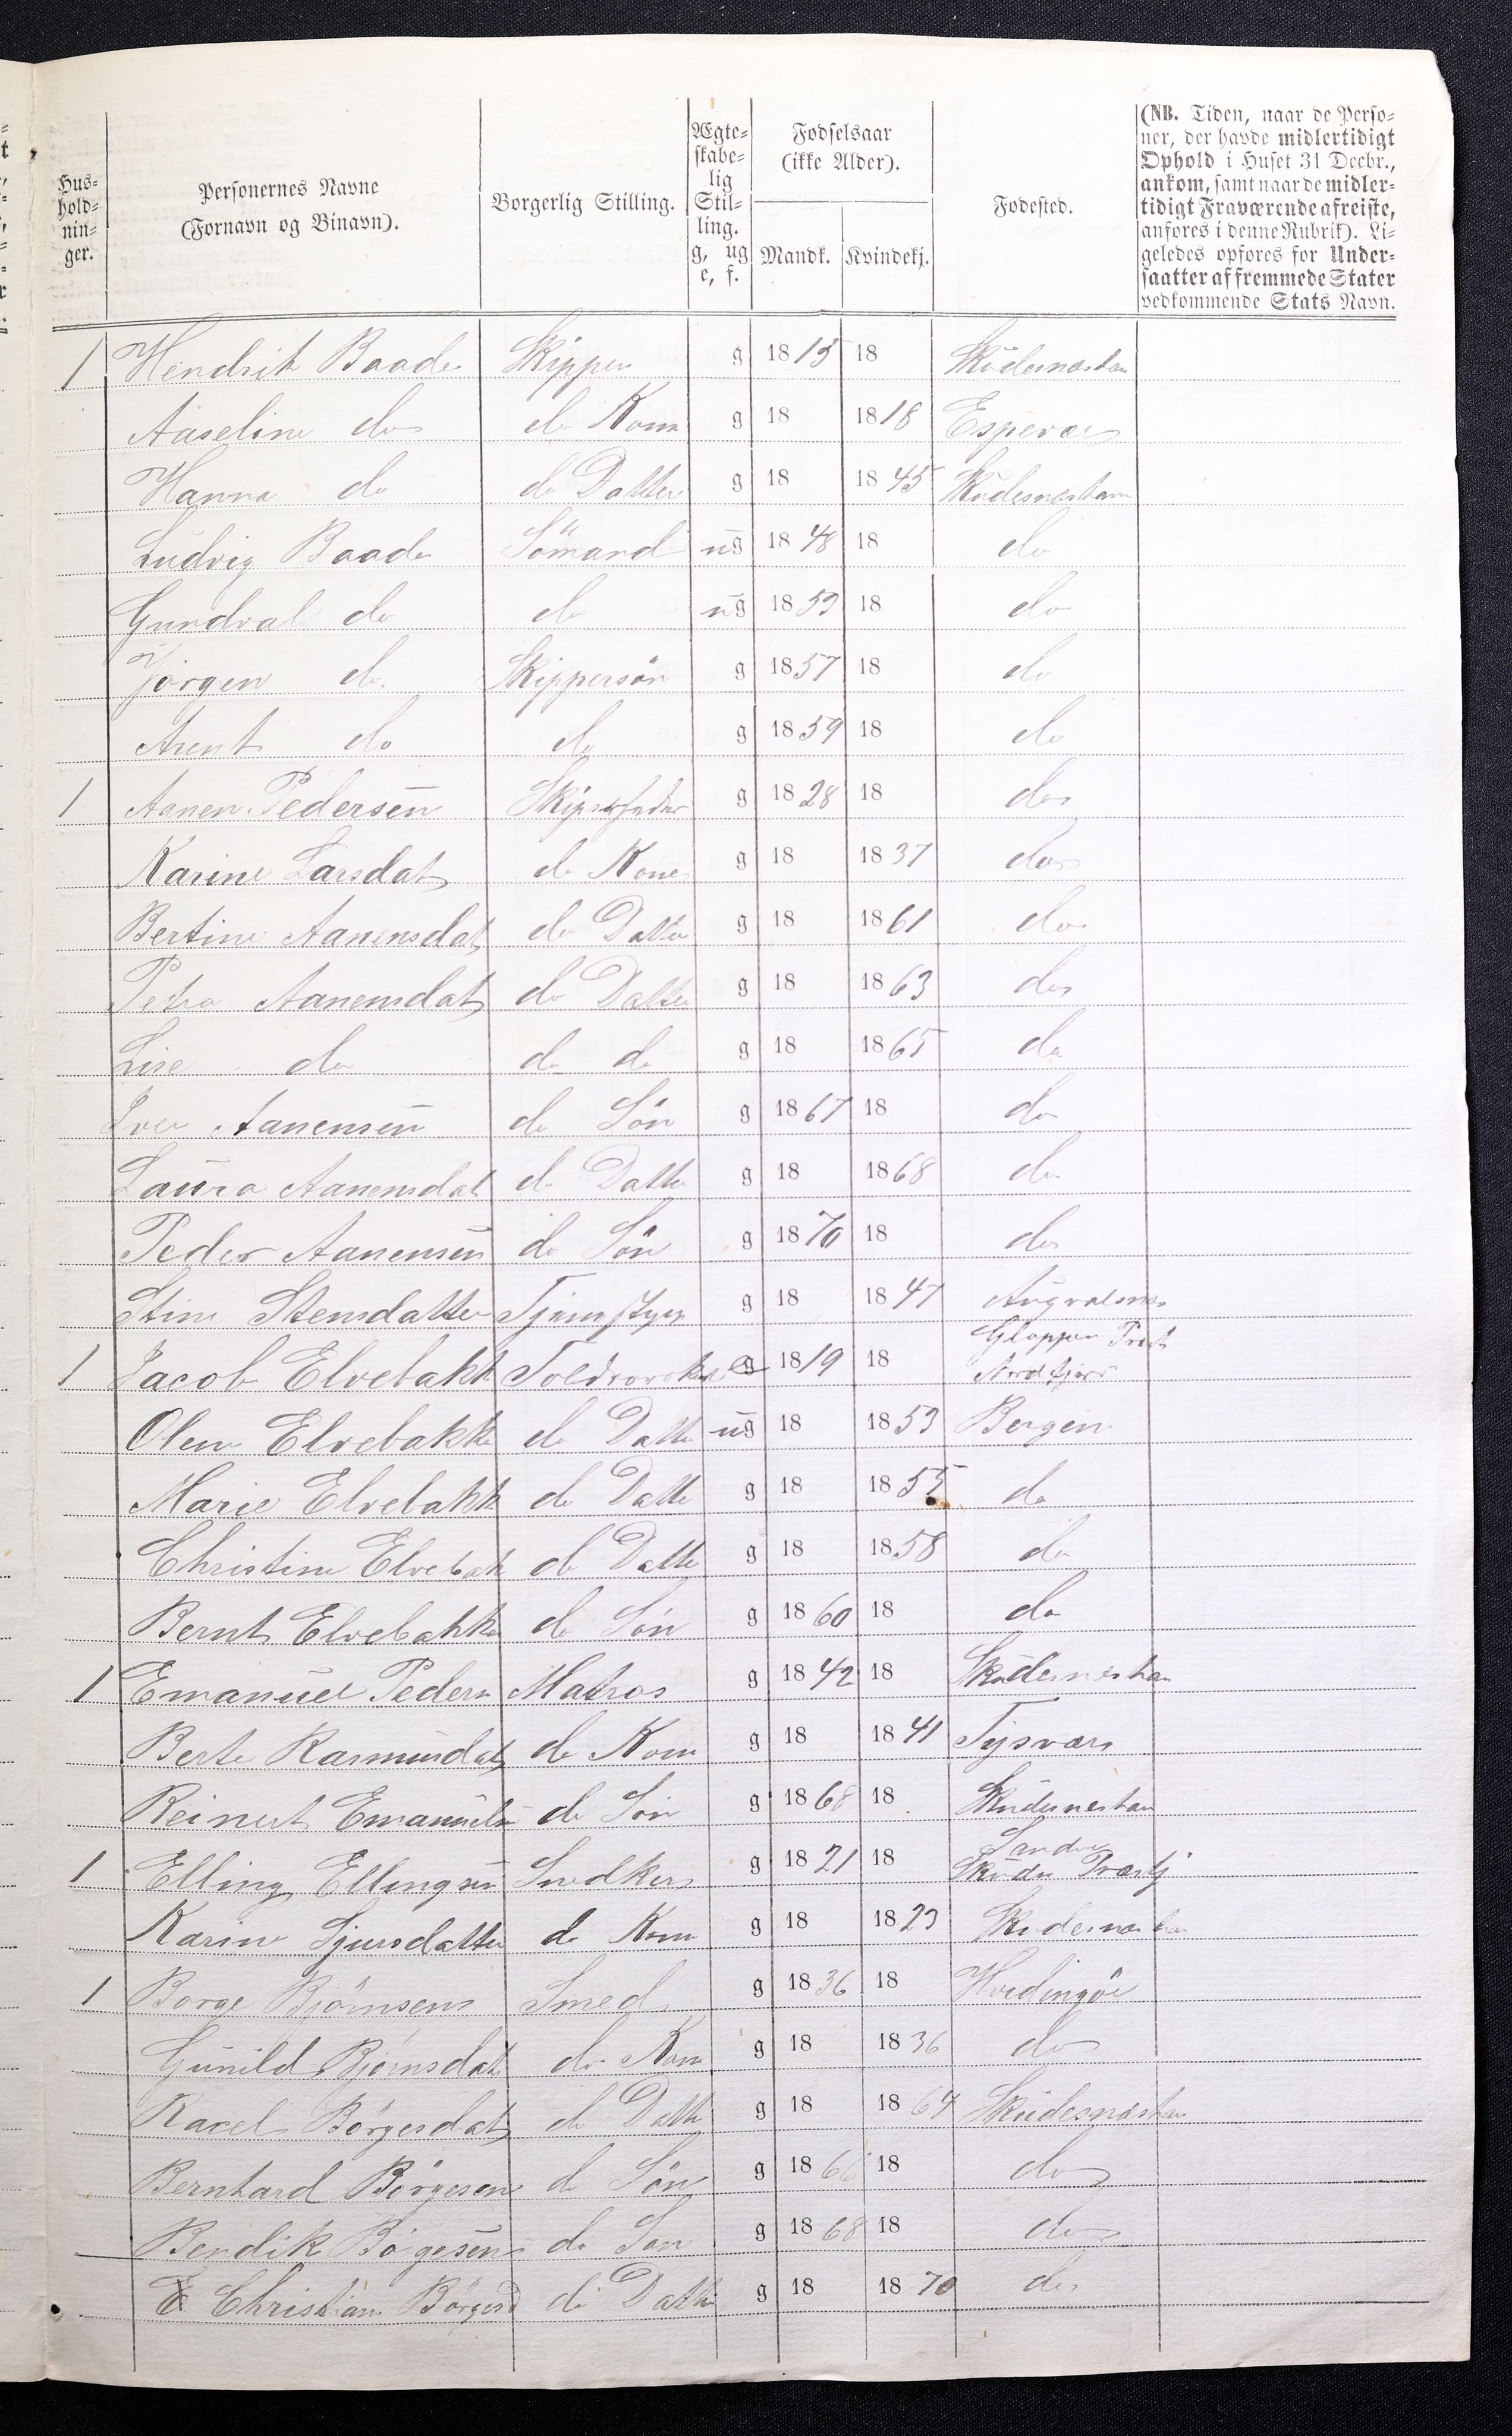 Hus-
hold-
nin-
ger.
Personernes Navne
(Fornavn og Binavn).
Borgerlig Stilling.
Ægte-
skabe-
lig
Stil-
ling.
g, ug
e, f.
Fødselsaar
(ikke Alder).
Mandk. Kvindekj.
Fødested.
(NB. Tiden, naar de Perso-
ner, der havde midlertidigt
Ophold i Huset 31 Decbr.,
ankom, samt naar de midler-
tidigt Fraværende afreiste,
anføres i denne Rubrik). Li-
geledes opføres for Under-
saatter af fremmede Stater
vedkommende Stats Navn.
1 Hendrik Baade Skipper g 1815 18 Skudesnæshavn
Aaseline do do Kone g 18 1818 Espevær
Hanna do do Datter g 18 1845 Skudesnæshavn
Ludvig Baade Sömand ug 1848 18 do
Gundval do do ug 1853 18 do
Jörgen do Skippersön g 1857 18 do
Arent do do g 1859 18 do
1 Aanen Pedersen g 1828 18 do
Karine Larsdat do Kone g 18 1837 do
Bertine Aanensdat do Datter g 18 1861 do
Petra Aanensdat do Datter g 18 1863 do
Lise do do do g 18 1865 do
Iver Aanensen do Sön g 1867 18 do
Laura Aanensdat do Datter g 18 1868 do
Peder Aanensen do Sön g 1870 18 do
Stine Stensdatter g 18 1847 Augvalsnes
1 Jacob Elvebakk e g 1819 18 Gloppen Præst Nordfjord
Olene Elvebakke do Datter ug 18 1853 Bergen
Marie Elvebakk do Datte g 18 1855 do
Christine Elvebak do Datte g 18 1858 do
Bernt Elvebakke do Sön g 1860 18 do
1 Emanuel Peders Matros g 1842 18 Skudesneshavn
Berte Rasmusdat do Kone g 18 1841 Tysvær
Reinert Emanuels do Sön g 1868 18 Skudesneshavn
1 Elling Ellingsen g 1821 18 Sandve Skude Præstgj
Karine Sjursdatter do Kone g 18 1823 Skudesnæshavn
1 Börge Björnsen Smed g 1836 18 Hvidingsöe
Gunild Björnsdat do Kone g 18 1836 do
Racel Börgesdat do Datte g 18 1864 Skudesnæshavn
Bernhard Börgesen do Sön g 1866 18 do
Bendik Börgesen do Sön g 1868 18 do
Christiane Börgesd do Datte g 18 1870 do